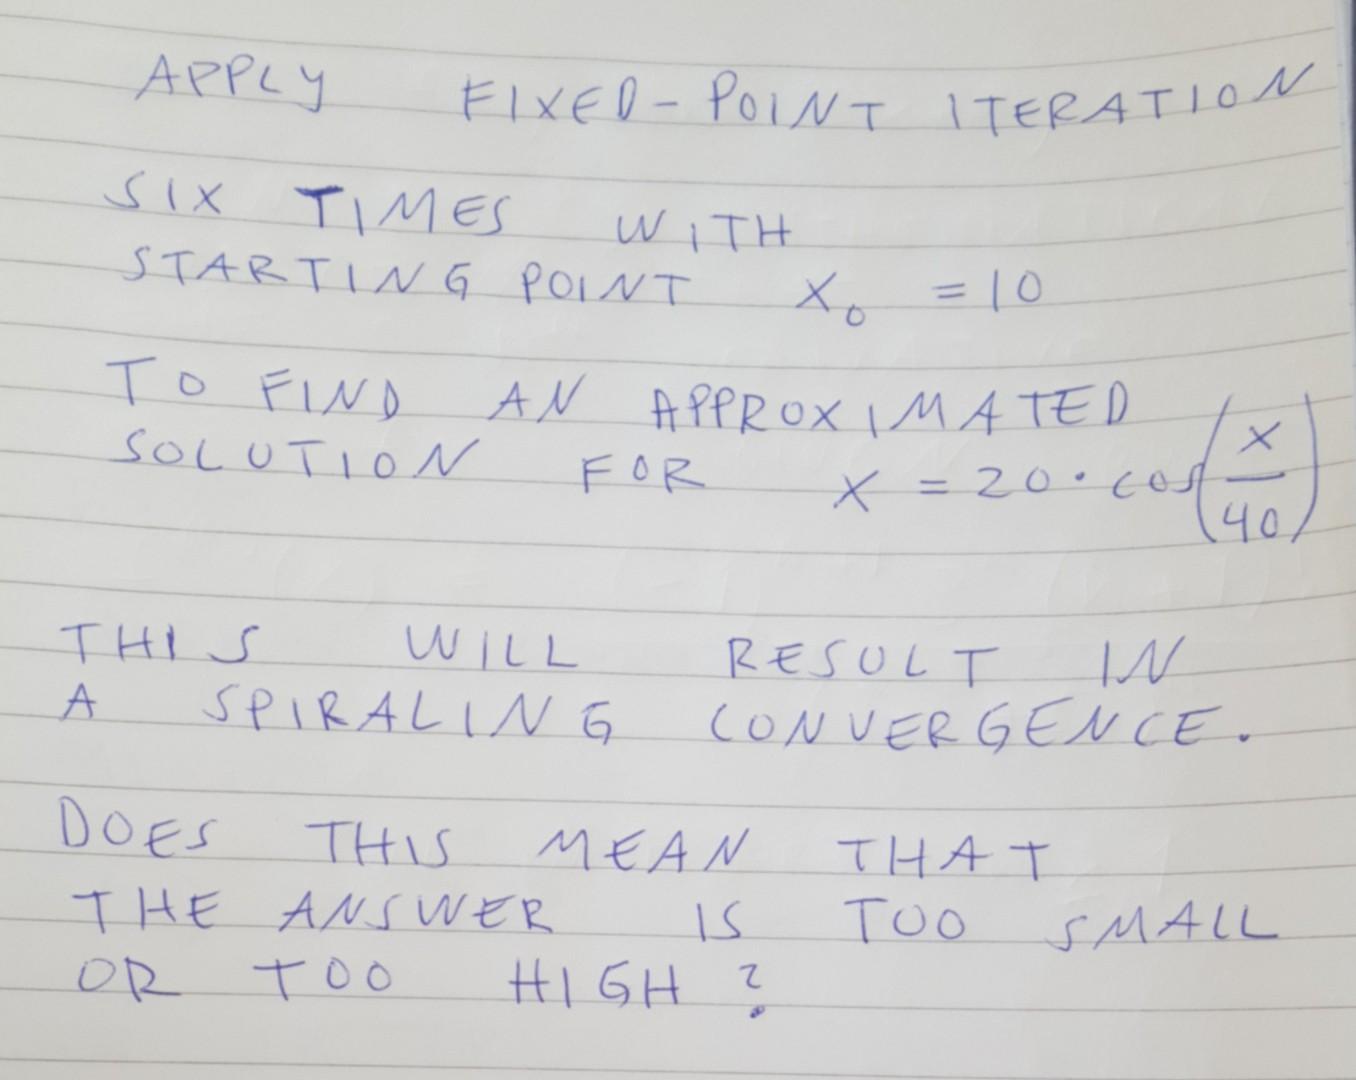 APPLY FIXED-POINT ITERATION
SIX TIMES WITH
STARTING POINT x₀ = 10
TO FIND AN APPROXIMATED
SOLUTION FOR x = 20 · cos(x/40)
THIS WILL RESULT IN
A SPIRALING CONVERGENCE.
DOES THIS MEAN THAT
THE ANSWER IS TOO SMALL
OR TOO HIGH?